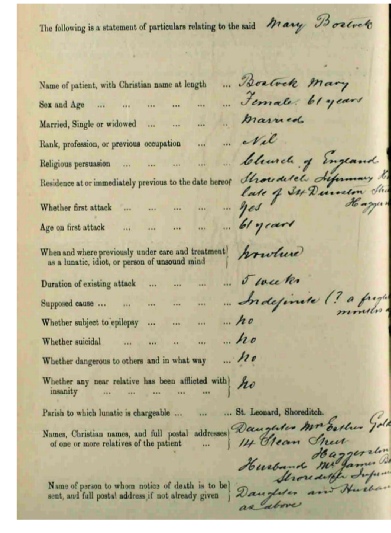 The following is a statement of particulars relating to the said Mary Bostock
Name of patient, with Christian name at length ... Bostock Mary
Sex and Age ... ... ... ... ... ... Female 61 years
Married, Single or widowed ... ... ... ... Married
Rank, profession, or previous occupation ... ... Nil
Religious persuasion ... ... ... ... ... Church of England
Residence at or immediately previous to the date hereof Shoreditch Infirmary
late of
Whether first attack ... ... ... ... ... Yes
Age on first attack ... ... ... ... ... 61 years
When and where previously under care and treatment
as a lunatic, idiot, or person of unsound mind } Nowhere
Duration of existing attack ... ... ... ... 5 weeks
Supposed cause ... ... ... ... ... ... Indefinite (? a
months
Whether subject to epilepsy ... ... ... ... No
Whether suicidal ... ... ... ... ... No
Whether dangerous to others and in what way ... No
Whether any near relative has been afflicted with
insanity ... ... ... ... ... ... } No
Parish to which lunatic is chargeable ... ... ... St. Leonard, Shoreditch.
Names, Christian names, and full postal addresses
of one or more relatives of the patient ... } Daughter Mrs Esther Gold
14 Street
Haggerston
Husband Mr James
Shoreditch
Name of person to whom notice of death is to be
sent, and full postal address if not already given } Daughter and Husband
as above